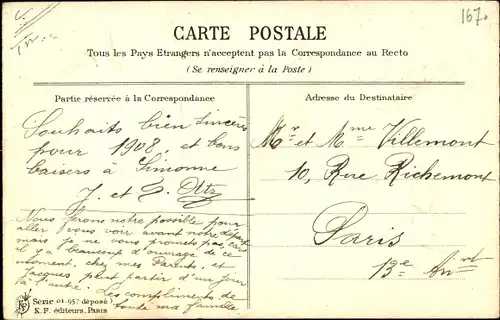 167.
CARTE POSTALE
Tous les Pays Etrangers n'acceptent pas la Correspondance au Recto
(Se renseigner à la Poste)
Partie réservée à la Correspondance
Souhaits bien sincères
pour 1908, et bons
baisers à Simonne
J. et
Nous ferons notre possible pour
aller vous voir avant notre départ
mais je ne vous promets pas, car
il y a beaucoup d'ouvrage de ce
moment, chez mes Parents, et
Jacques peut partir d'un jour
à l'autre. Les compliments de
toute ma famille.
Série 01.957 déposé)
K. F. éditeurs, Paris
Adresse du Destinataire
Mr et Mme Villemont
10, Rue Richemont
Paris
13e Arint